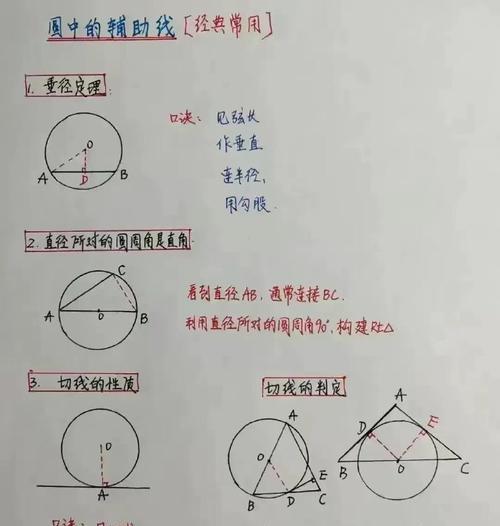 圆中的辅助线[经典常用]
1. 垂径定理
口诀: 见弦长
作垂直
连半径,
用勾股.
O
A
D
B
2. 直径所对的圆周角是直角.
C
A
O
B
看到直径AB, 通常连接BC.
利用直径所对的圆周角90°, 构建Rt△
3. 切线的性质
切线的判定
O
A
A
O
E
B
D
C
A
D
E
B
O
C
口诀: